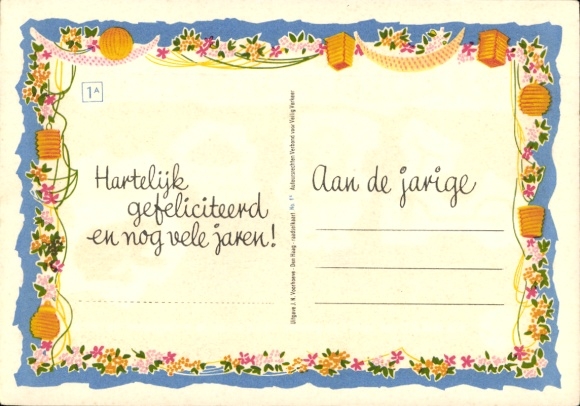 1A
Hartelijk
gefeliciteerd
en nog vele jaren!
Uitgave J. H. Voorhoeve - Den Haag - raadselkaart No. 1A Auteursrechten Verbond voor Veilig Verkeer
Aan de jarige